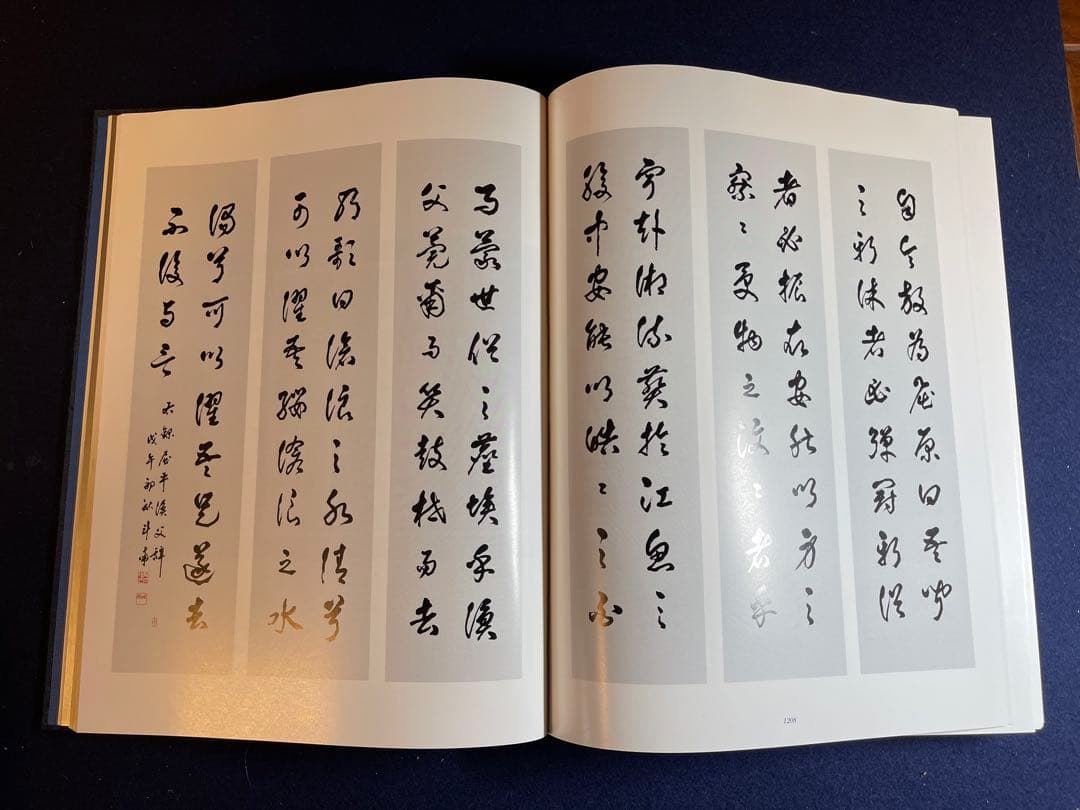 自令放為屈原曰吾聞
之新沐者必彈冠新浴
者必振衣安能以身之
察〻受物之汶〻者乎
寧赴湘流葬於江魚之
腹中安能以皓〻之白
而蒙世俗之塵埃乎漁
父莞爾而笑鼓枻而去
乃歌曰滄浪之水清兮
可以濯吾纓滄浪之水
濁兮可以濯吾足遂去
不復與言
右錄屈平漁父辭
戊午初秋